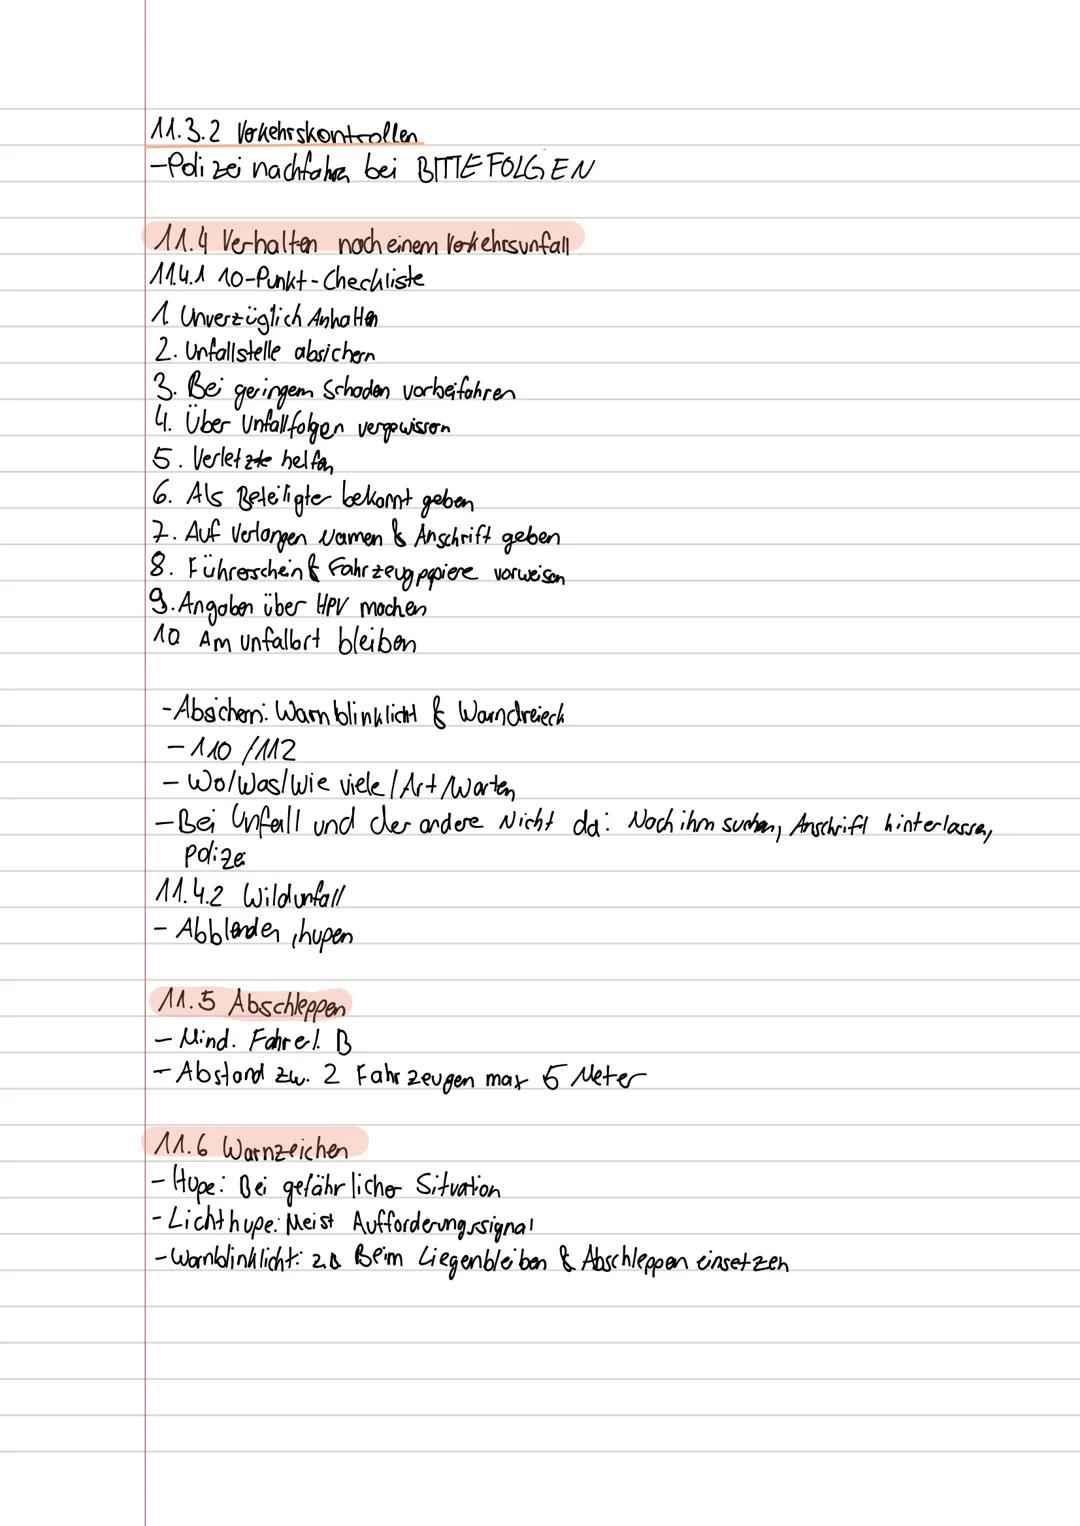 11.3.2 Verkehrskontrollen
-Polizei nachfahren bei BITTE FOLGEN
11.4 Verhalten nach einem Verkehrsunfall
11.4.1 10-Punkt-Checkliste
1. Unverzüglich Anhalten
2. Unfallstelle absichern
3. Bei geringem Schaden vorbeifahren
4. Über Unfallfolgen vergewissern
5. Verletzte helfen
6. Als Beteiligter bekannt geben
7. Auf Verlangen Namen & Anschrift geben
8. Führerschein & Fahrzeugpapiere vorweisen
9. Angaben über HPV machen
10 Am unfallort bleiben
-Absichern: Warnblinklicht & Warndreieck
- 110 / 112
- Wo/Was/Wie viele / Art / Warten
-Bei Unfall und der andere Nicht da: Nach ihm suchen, Anschrift hinterlassen,
Polizei
11.4.2 Wildunfall
- Abblenden, hupen
11.5 Abschleppen
- Mind. Fahrel. B
- Abstand zw. 2 Fahrzeugen max 5 Meter
11.6 Warnzeichen
- Hupe: Bei gefährlicher Situation
- Lichthupe: Meist Aufforderungssignal
-Warnblinklicht: z.B Beim Liegenbleiben & Abschleppen einsetzen